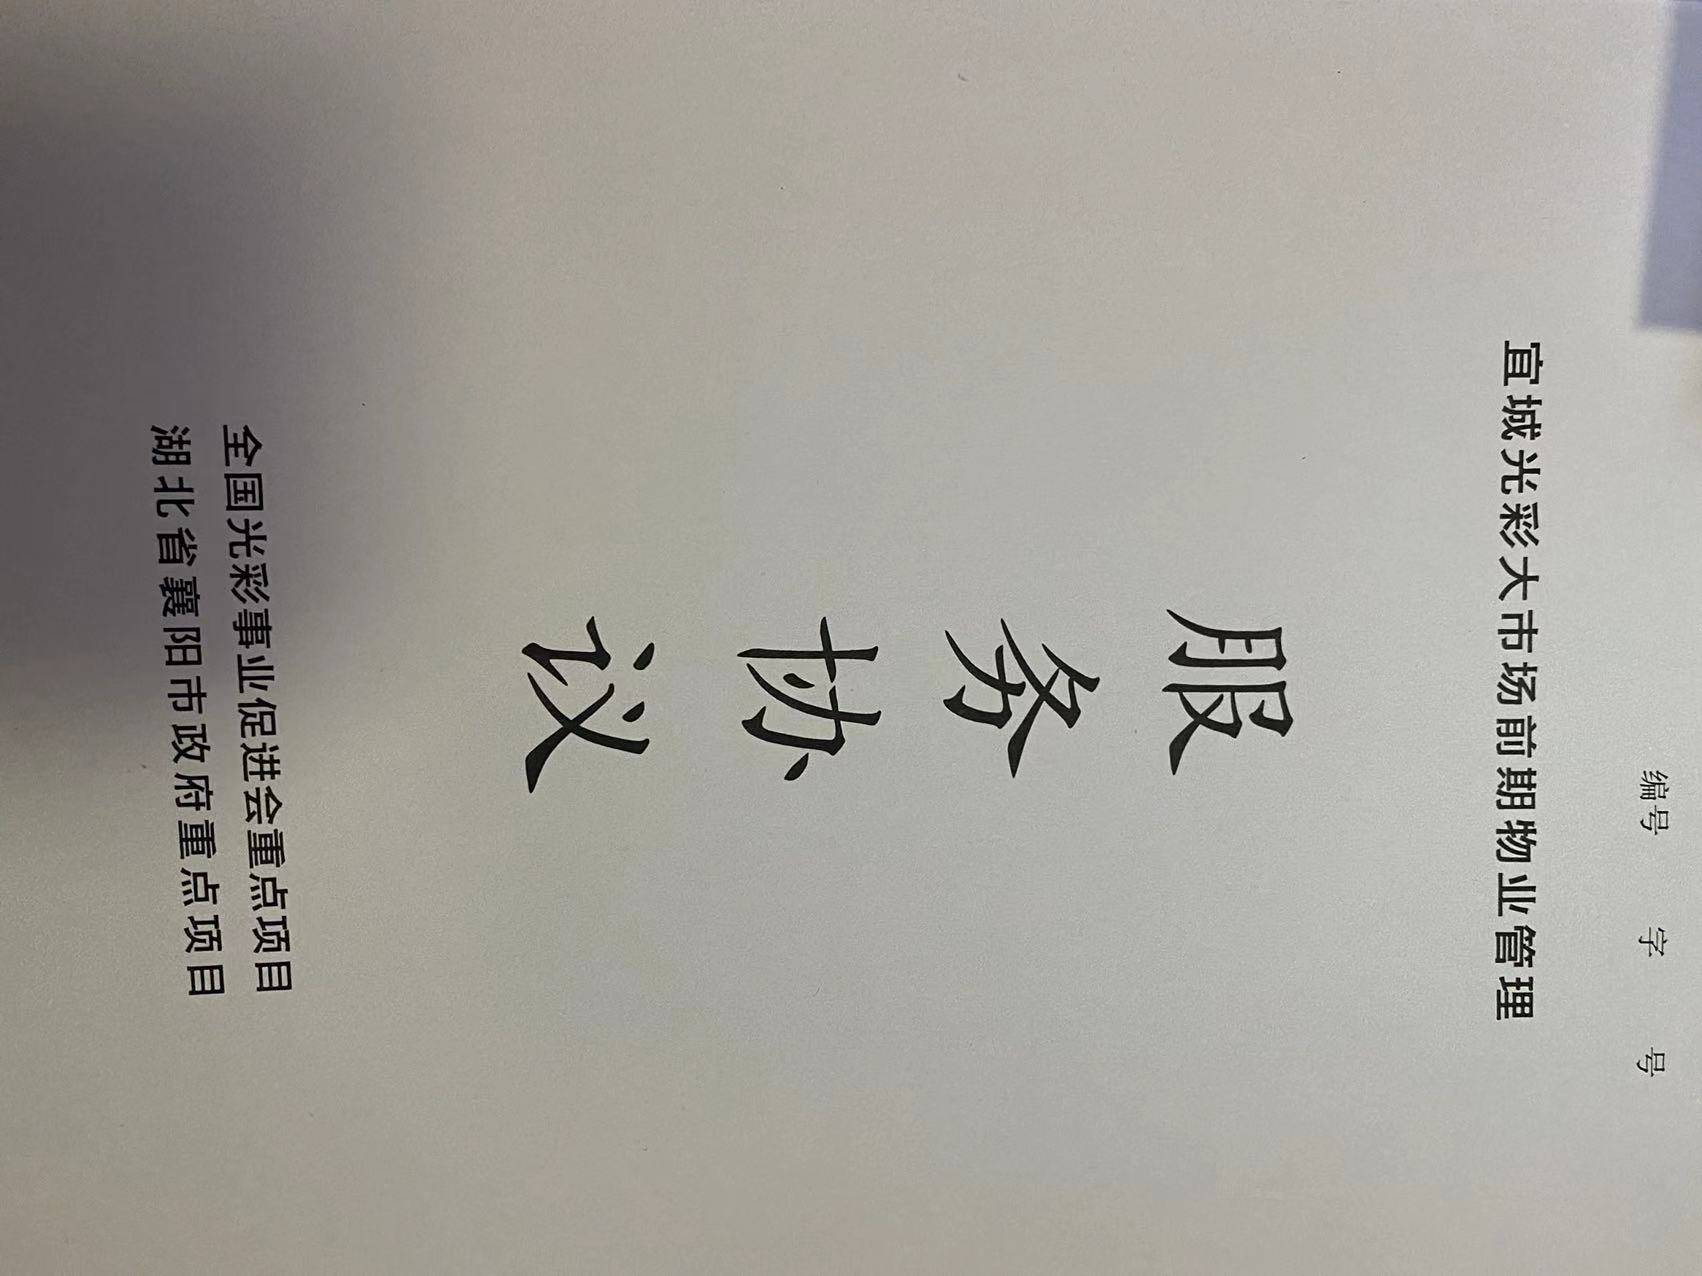 编号 字 号
宜城光彩大市场前期物业管理
服
务
协
议
全国光彩事业促进会重点项目
湖北省襄阳市政府重点项目